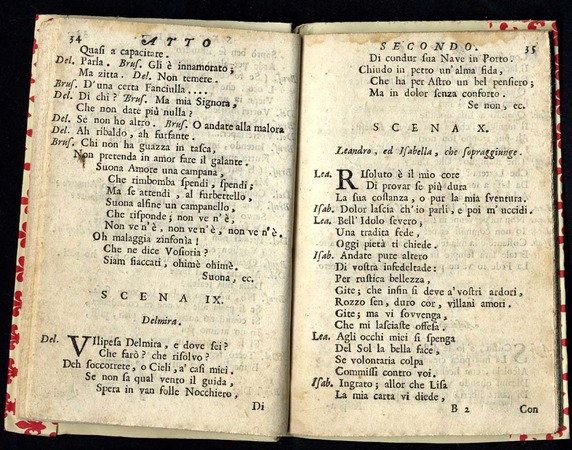 34 ATTO
Quasi a capacitare.
Del. Parla. Bruf. Gli è innamorato;
Ma zitta. Del. Non temere.
Bruf. D'una certa Fanciulla ....
Del. Di chi? Bruf. Ma mia Signora,
Che non date più nulla?
Del. Se non ho altro. Bruf. O andate alla malora
Del. Ah ribaldo, ah furfante.
Bruf. Chi non ha guazza in tasca,
Non pretenda in amor fare il galante.
Suona Amore una campana,
Che rimbomba spendi, spendi;
Ma se attendi, al furbettello,
Suona alfine un campanello,
Che risponde; non ve n'è,
Non ve n'è, non ve n'è, non ve n'è.
Oh malaggia zinfonìa!
Che ne dice Vosoria?
Siam fiaccati, ohimè ohimè.
Suona, ec.
SCENA IX.
Delmira.
Del. VIlipesa Delmira, e dove sei?
Che farò? che risolvo?
Deh soccorrete, o Cieli, a' casi miei.
Se non sa qual vento il guida,
Spera in van folle Nocchiero,
Di
SECONDO. 35
Di condur sua Nave in Porto.
Chiudo in petto un'alma fida,
Che ha per Astro un bel pensiero;
Ma in dolor senza conforto.
Se non, ec.
SCENA X.
Leandro, ed Isabella, che sopraggiunge.
Lea. RIsoluto è il mio core
Di provar se più dura
La sua costanza, o pur la mia sventura.
Isab. Dolor lascia ch'io parli, e poi m'uccidi.
Lea. Bell' Idolo severo,
Una tradita fede,
Oggi pietà ti chiede.
Isab. Andate pure altero
Di vostra infedeltade:
Per rustica bellezza,
Gite; che infin si deve a' vostri ardori,
Rozzo sen, duro cor, villani amori.
Gite; ma vi sovvenga,
Che mi lasciaste offesa.
Lea. Agli occhi miei si spenga
Del Sol la bella face,
Se volontaria colpa
Commissi contro voi.
Isab. Ingrato; allor che Lisa
La mia carta vi diede,
B 2 Con